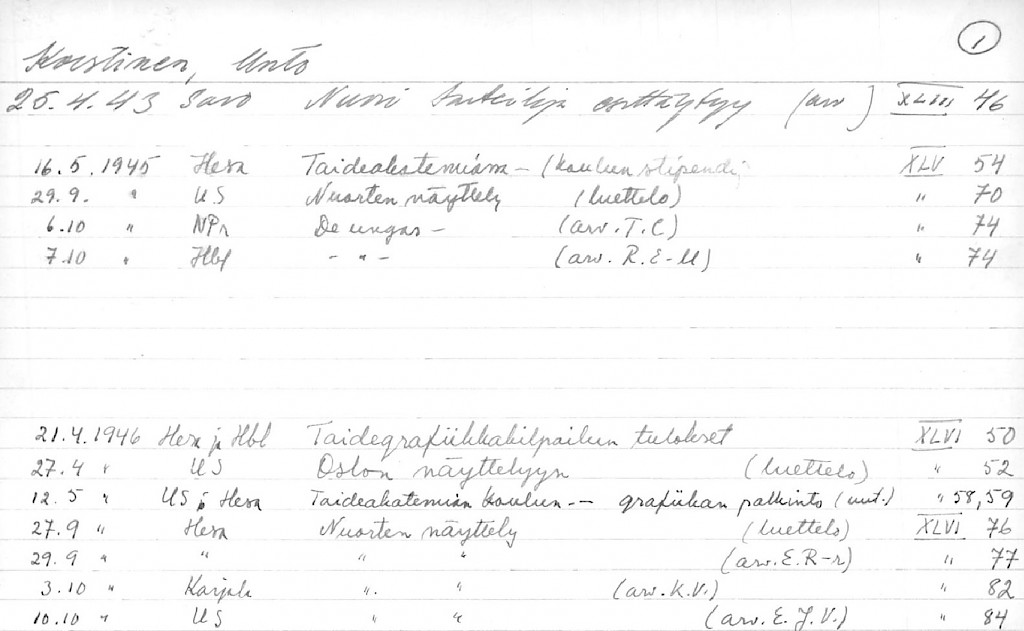 1
Koistinen, Unto
25.4.43 Savo Nuori taiteilija esittäytyy (arv) XLIII 46
16.5.1945 Hesa Taideakatemian – (koulun stipendi XLV 54
29.9. " US Nuorten näyttely (luettelo) " 70
6.10 " NPr De ungas – (arv. T.C) " 74
7.10 " Hbl – " – (arv. R.E-U) " 74
21.4.1946 Hesa ja Hbl Taidegrafiikkakilpailun tulokset XLVI 50
27.4 " US Oslon näyttelyyn (luettelo) " 52
12.5 " US ja Hesa Taideakatemian koulun –– grafiikan palkinto (uut.) " 58,59
27.9 " Hesa Nuorten näyttely (luettelo) XLVI 76
29.9 " " " " (arv. E.R-r) " 77
3.10 " Karjala " " (arv. K.V.) " 82
10.10 " US " " (arv. E.J.V.) " 84